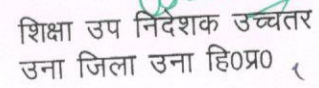 शिक्षा उप निदेशक उच्चतर
उना जिला उना हि0प्र0